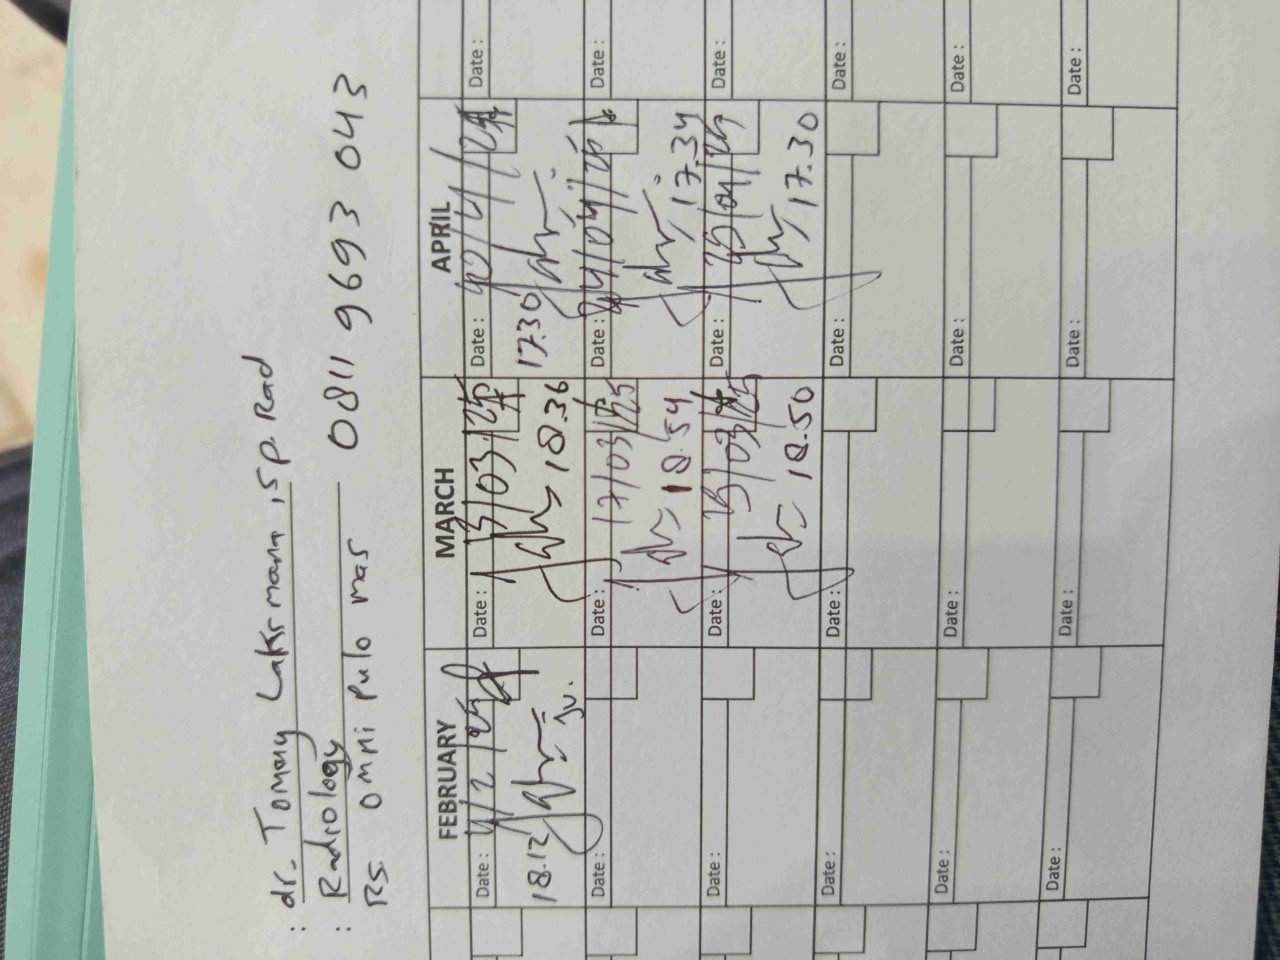 : dr. Tommy Lakrmana, Sp. Rad
: Radiology 0811 9693 043
Rs. omni Pulo mas
FEBRUARY MARCH APRIL
Date : 4/2/25 Date : 13/03/25 Date : Date :
18.12 18.36 17.30
Date : Date : 17/03/25 Date : 04/25 Date :
18.54 17.34
Date : Date : 25/03/25 Date : /04/25 Date :
18.50 17.30
Date : Date : Date : Date :
Date : Date : Date : Date :
Date : Date : Date : Date :